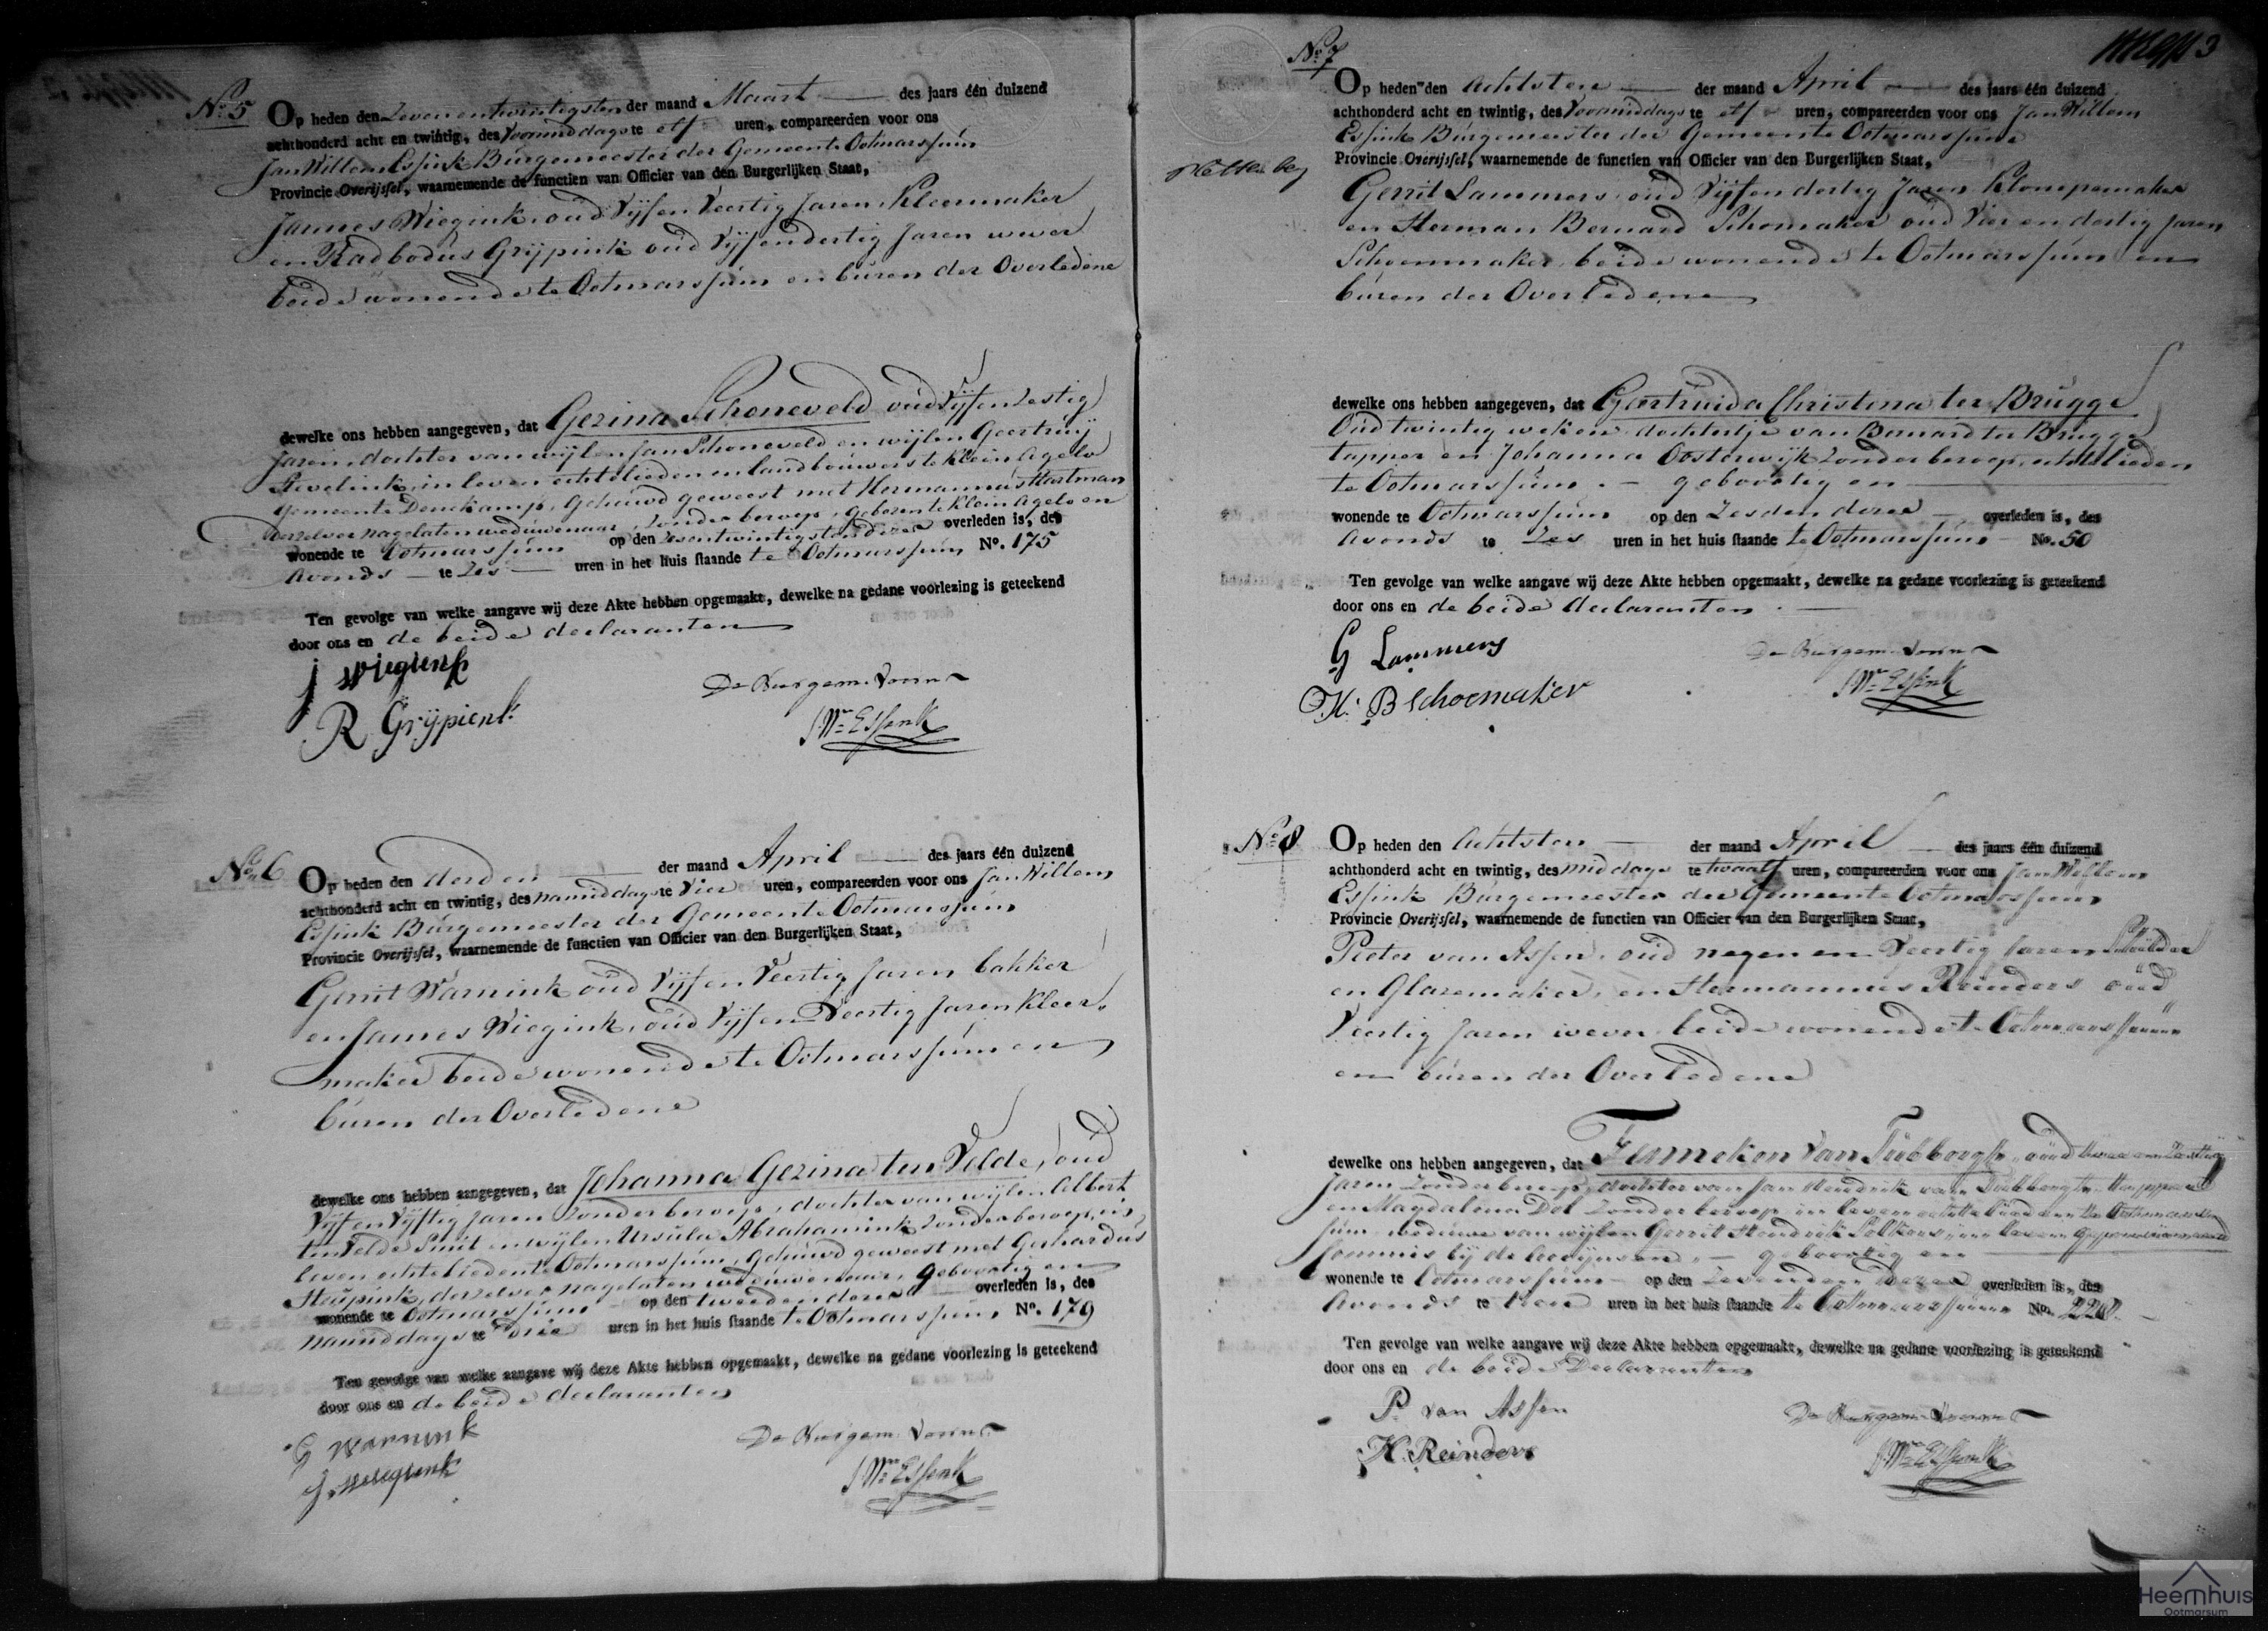 No 5 Op heden den Zevenentwintigsten der maand Maart des jaars één duizend
achthonderd acht en twintig, des voormiddags te elf uren, compareerden voor ons
Jan Willem Essink Burgemeester der Gemeente Ootmarssum
Provincie Overijssel, waarnemende de functien van Officier van den Burgerlijken Staat,
Jannes Wiegink, oud Vijf en Veertig Jaren Kleermaker
en Radbodus Grijpink oud Vijf en dertig Jaren wever
beide wonende te Ootmarssum en buren der Overledene
dewelke ons hebben aangegeven, dat Gezina Schoneveld oud Vijf en Zestig
Jaren, dochter van wijlen Jan Schoneveld en wijlen Geertruij
in leven echtelieden en landbouwers te Klein Agelo
Gemeente Denekamp, Gehuwd geweest met Hermannus Hartman
derzelver nagelaten weduwenaar, zonder beroep, geboren te Klein Agelo en
wonende te Ootmarssum op den Zesentwintigsten dezer overleden is, des
Avonds te Zes uren in het huis staande te Ootmarssum No. 175
Ten gevolge van welke aangave wij deze Akte hebben opgemaakt, dewelke na gedane voorlezing is geteekend
door ons en de beide declaranten
J Wiegienk
R Grijpienk
De Burgem. Voorn
J Wm Essink
No 6 Op heden den derden der maand April des jaars één duizend
achthonderd acht en twintig, des namiddags te Vier uren, compareerden voor ons Jan Willem
Essink Burgemeester der Gemeente Ootmarssum
Provincie Overijssel, waarnemende de functien van Officier van den Burgerlijken Staat,
Gerrit Warnink oud Vijf en Veertig Jaren bakker
en Jannes Wiegink, oud Vijf en Veertig Jaren Kleer
maker beide wonende te Ootmarssum en
buren der Overledene
dewelke ons hebben aangegeven, dat Johanna Gezina ten Velde, oud
Vijf en Vijftig Jaren zonder beroep, dochter van wijlen Albert
ten Velde Smit en wijlen Ursula Abrahamink zonder beroep, in
leven echtelieden te Ootmarssum, Gehuwd geweest met Gerhardus
derzelver nagelaten weduwenaar, geboortig en
wonende te Ootmarssum op den tweeden dezer overleden is, des
namiddags te drie uren in het huis staande te Ootmarssum No. 179
Ten gevolge van welke aangave wij deze Akte hebben opgemaakt, dewelke na gedane voorlezing is geteekend
door ons en de beide declaranten
G Warnink
J. Wiegienk
De Burgem. Voorn
J Wm Essink
3
No 7
Op heden den Achtsten der maand April des jaars één duizend
achthonderd acht en twintig, des Voormiddags te elf uren, compareerden voor ons Jan Willem
Essink Burgemeester der Gemeente Ootmarssum
Provincie Overijssel, waarnemende de functien van Officier van den Burgerlijken Staat,
Gerrit Lammers, oud Vijf en dertig Jaren Klompemaker
en Herman Bernard Schomaker oud Vier en dertig Jaren
Schoenmaker, beide wonende te Ootmarssum en
buren der Overledene
dewelke ons hebben aangegeven, dat Geertruida Christena ter Brugge
Oud twintig weken dochtertje van Bernard ter Brugge
tapper en Johanna Oosterwijk zonder beroep, echtelieden
te Ootmarssum. geboortig en
wonende te Ootmarssum op den Zesden dezer overleden is, des
Avonds te Zes uren in het huis staande te Ootmarssum No. 50
Ten gevolge van welke aangave wij deze Akte hebben opgemaakt, dewelke na gedane voorlezing is geteekend
door ons en de beide declaranten.
G Lammers
H. B Schoemaker
De Burgem. Voorn
J Wm Essink
No 8 Op heden den Achtsten der maand April des jaars één duizend
achthonderd acht en twintig, des middags te twaalf uren, compareerden voor ons Jan Willem
Essink Burgemeester der Gemeente Ootmarssum
Provincie Overijssel, waarnemende de functien van Officier van den Burgerlijken Staat,
Pieter van Assen, oud negen en Veertig Jaren Schilder
en Glazemaker, en Hermannus Reinders oud
Veertig Jaren wever beide wonende te Ootmarssum
en buren der Overledene
dewelke ons hebben aangegeven, dat Fenneken van Tubbergh, oud
Jaren zonder beroep, dochter van Jan Hendrik van Tubbergh
en Magdalena Dol zonder beroep in leven echtelieden te Ootmars
sum weduwe van wijlen Gerrit Hendrik in leven
Commis bij de geboortig en
wonende te Ootmarssum op den Zevenden dezer overleden is, des
Avonds te uren in het huis staande te Ootmarssum No. 228.
Ten gevolge van welke aangave wij deze Akte hebben opgemaakt, dewelke na gedane voorlezing is geteekend
door ons en de beide Declaranten
P. van Assen
H. Reinders
De Burgem. Voorn
J Wm Essink
Heemhuis
Ootmarsum